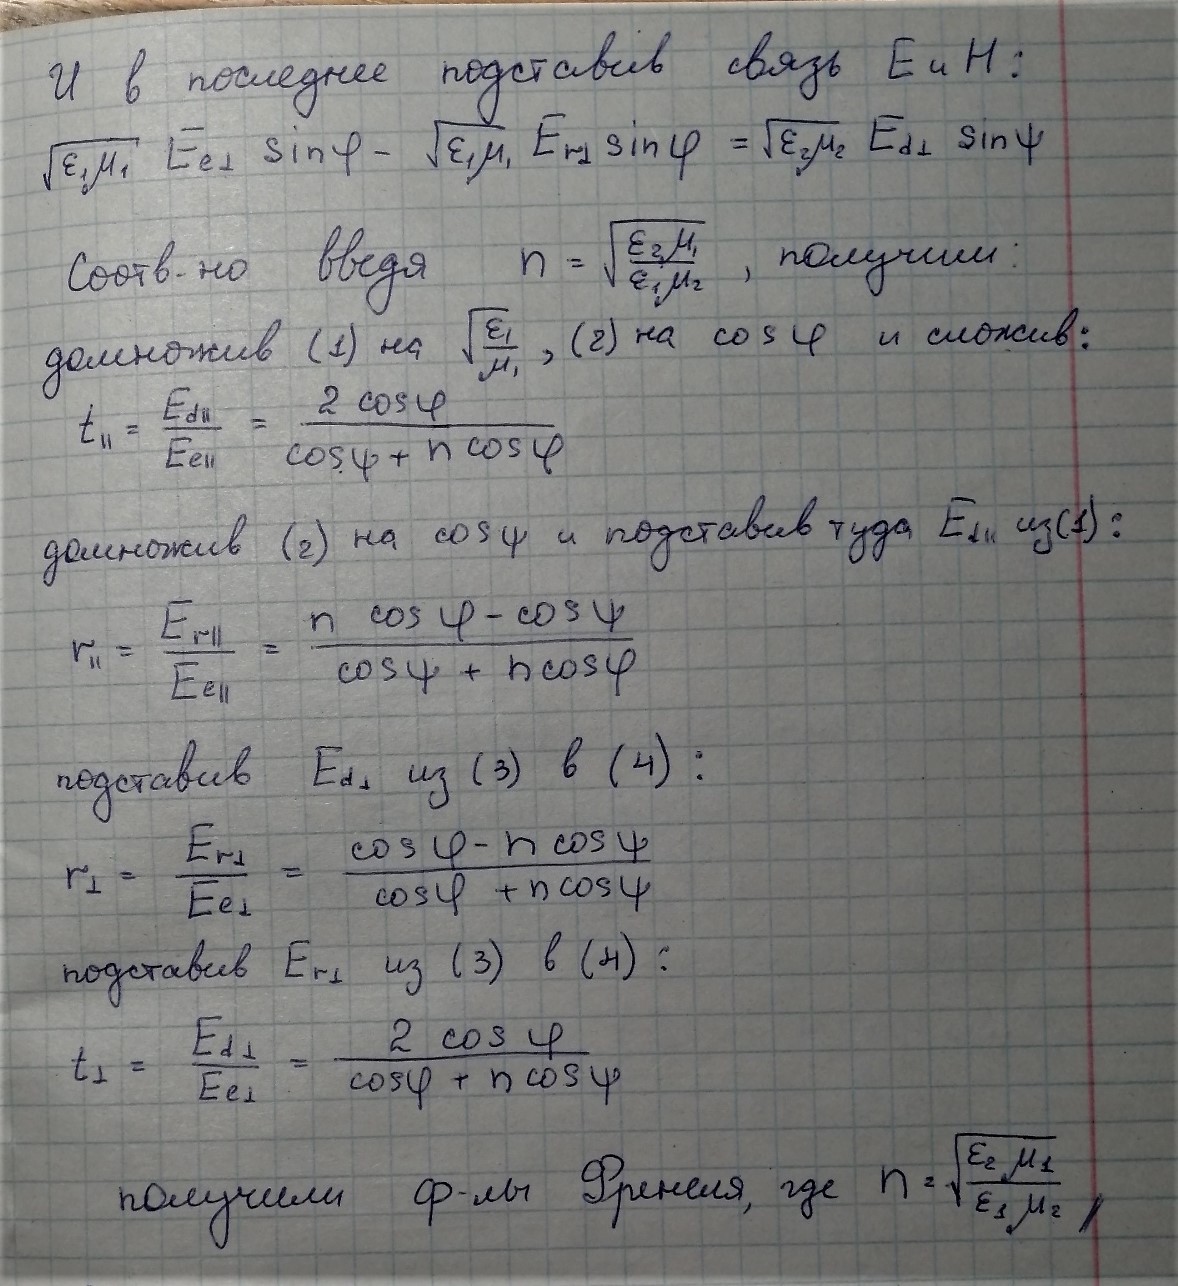 И в последнее подставив связь E и H:
√(ε₁μ₁) E_e⊥ sinφ - √(ε₁μ₁) E_r⊥ sinφ = √(ε₂μ₂) E_d⊥ sinψ
Соотв-но введя n = √(ε₂μ₁/ε₁μ₂), получим:
домножив (1) на √(ε₁/μ₁), (2) на cosφ и сложив:
t_∥ = E_d∥/E_e∥ = 2 cosφ/(cosψ + n cosφ)
домножив (2) на cosψ и подставив туда E_d∥ из (1):
r_∥ = E_r∥/E_e∥ = (n cosφ - cosψ)/(cosψ + n cosφ)
подставив E_d⊥ из (3) в (4):
r_⊥ = E_r⊥/E_e⊥ = (cosφ - n cosψ)/(cosφ + n cosψ)
подставив E_r⊥ из (3) в (4):
t_⊥ = E_d⊥/E_e⊥ = 2 cosφ/(cosφ + n cosψ)
получили ф-лы Френеля, где n = √(ε₂μ₁/ε₁μ₂)